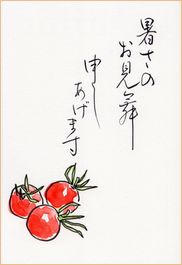 暑さの
お見舞
申し
あげます